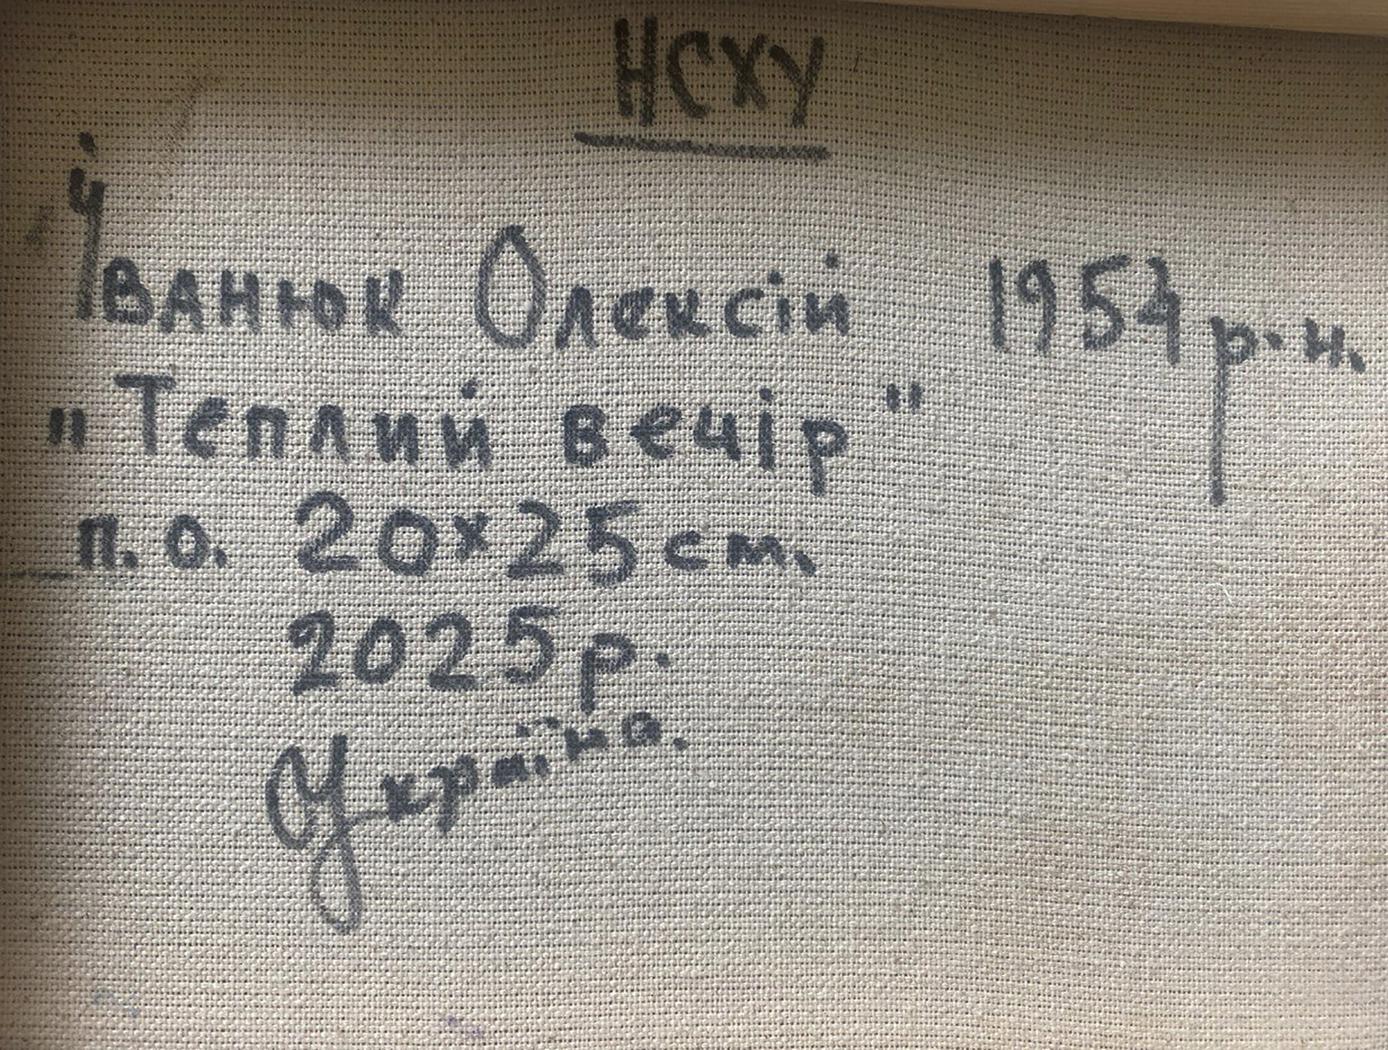 НСХУ
Іванюк Олексій 1954 р.н.
"Теплий вечір"
п.о. 20х25 см.
2025 р.
Україна.